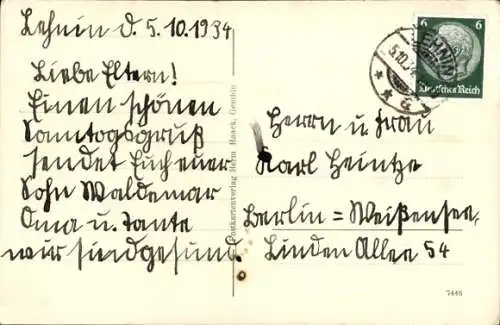 Lehnin d. 5.10.1934
Liebe Eltern!
Einen schönen
Sonntagsgruß
sendet Euch euer
Sohn Waldemar
Oma u. Tante
wir sind gesund.
Postkartenverlag Herm Haack, Genthin
6 6
Deutsches Reich
LEHNIN
5.10.34
a
Herrn u. Frau
Karl Heintze
Berlin = Weißensee,
Linden Allee 54
7448